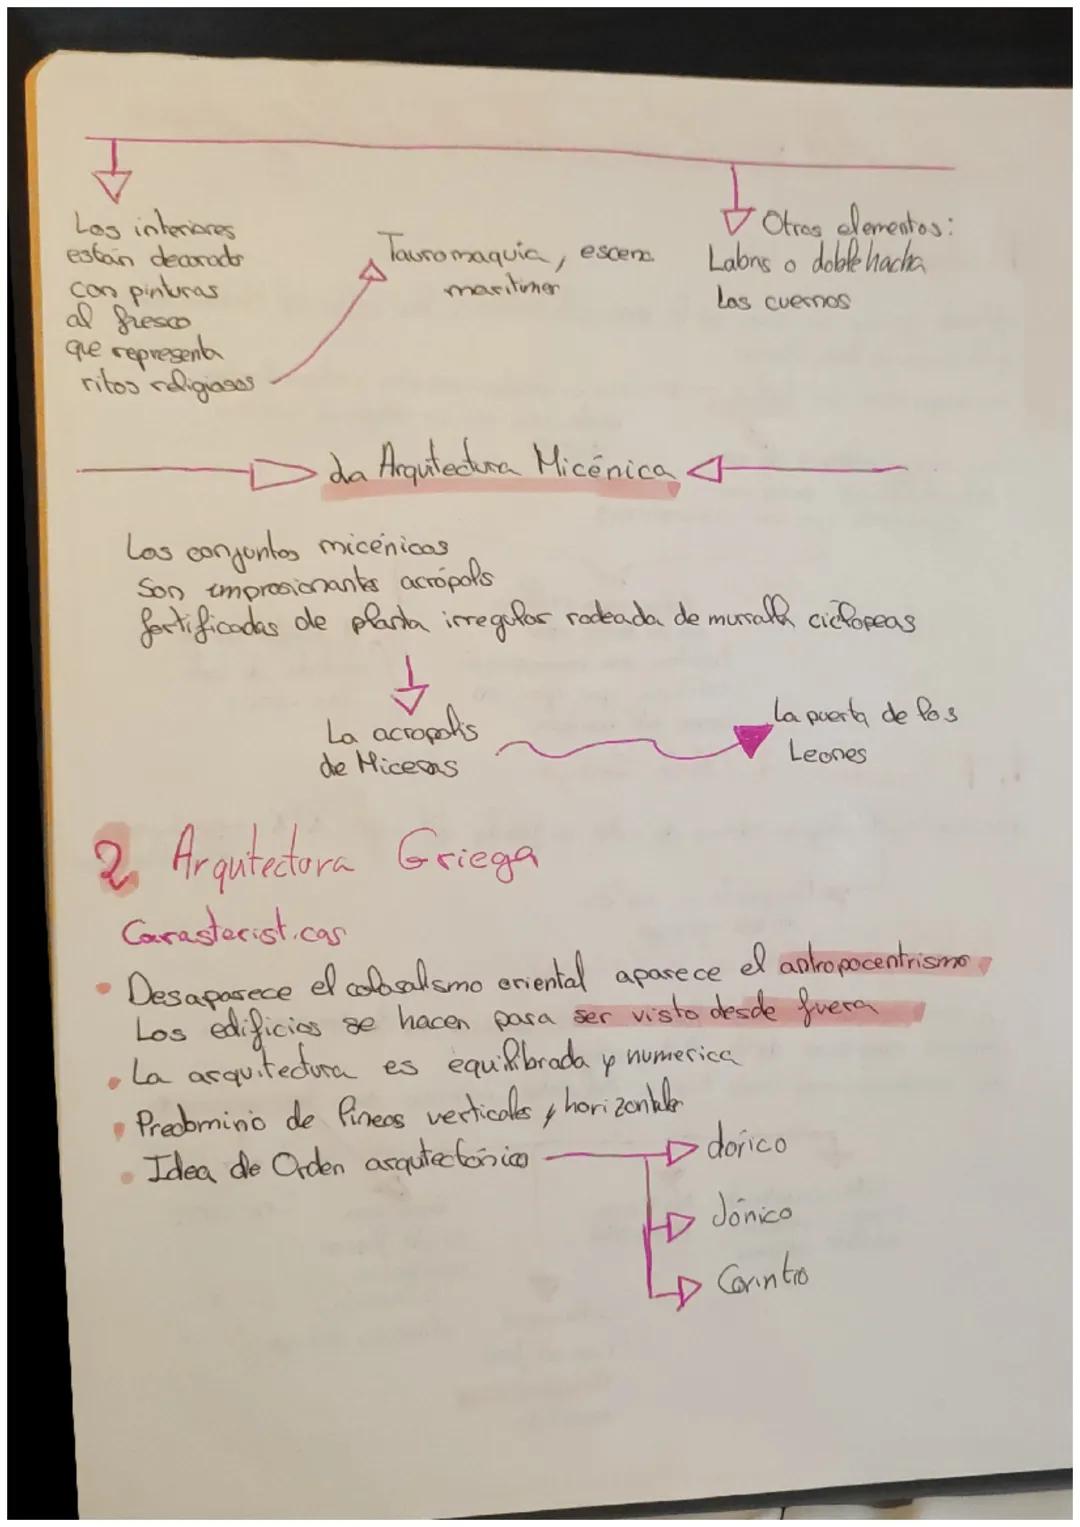 Los interiores
están decorado
con pinturas
al fresco
que representa
ritos religiosos
Tauromaquia, escena
maritimer
Otros elementos:
Labns o doble hacha
Los cuernos
La Arquitectura Micénica
Los conjuntos micénicos
Son impresionantes acrópolis
fortificadas de planta irregular rodeada de muralla ciclopeas
La acropolis
de Micenas
La puerta de los
Leones
2 Arquitectura Griega
Caracteristicas
Desaparece el colosalismo oriental aparece el antropocentrismo
Los edificios se hacen para ser visto desde fuera
La arquitectura es equilibrada y numerica
Predominio de líneas verticales y horizontales
Idea de Orden arquitectónico
dorico
Jónico
Corintio